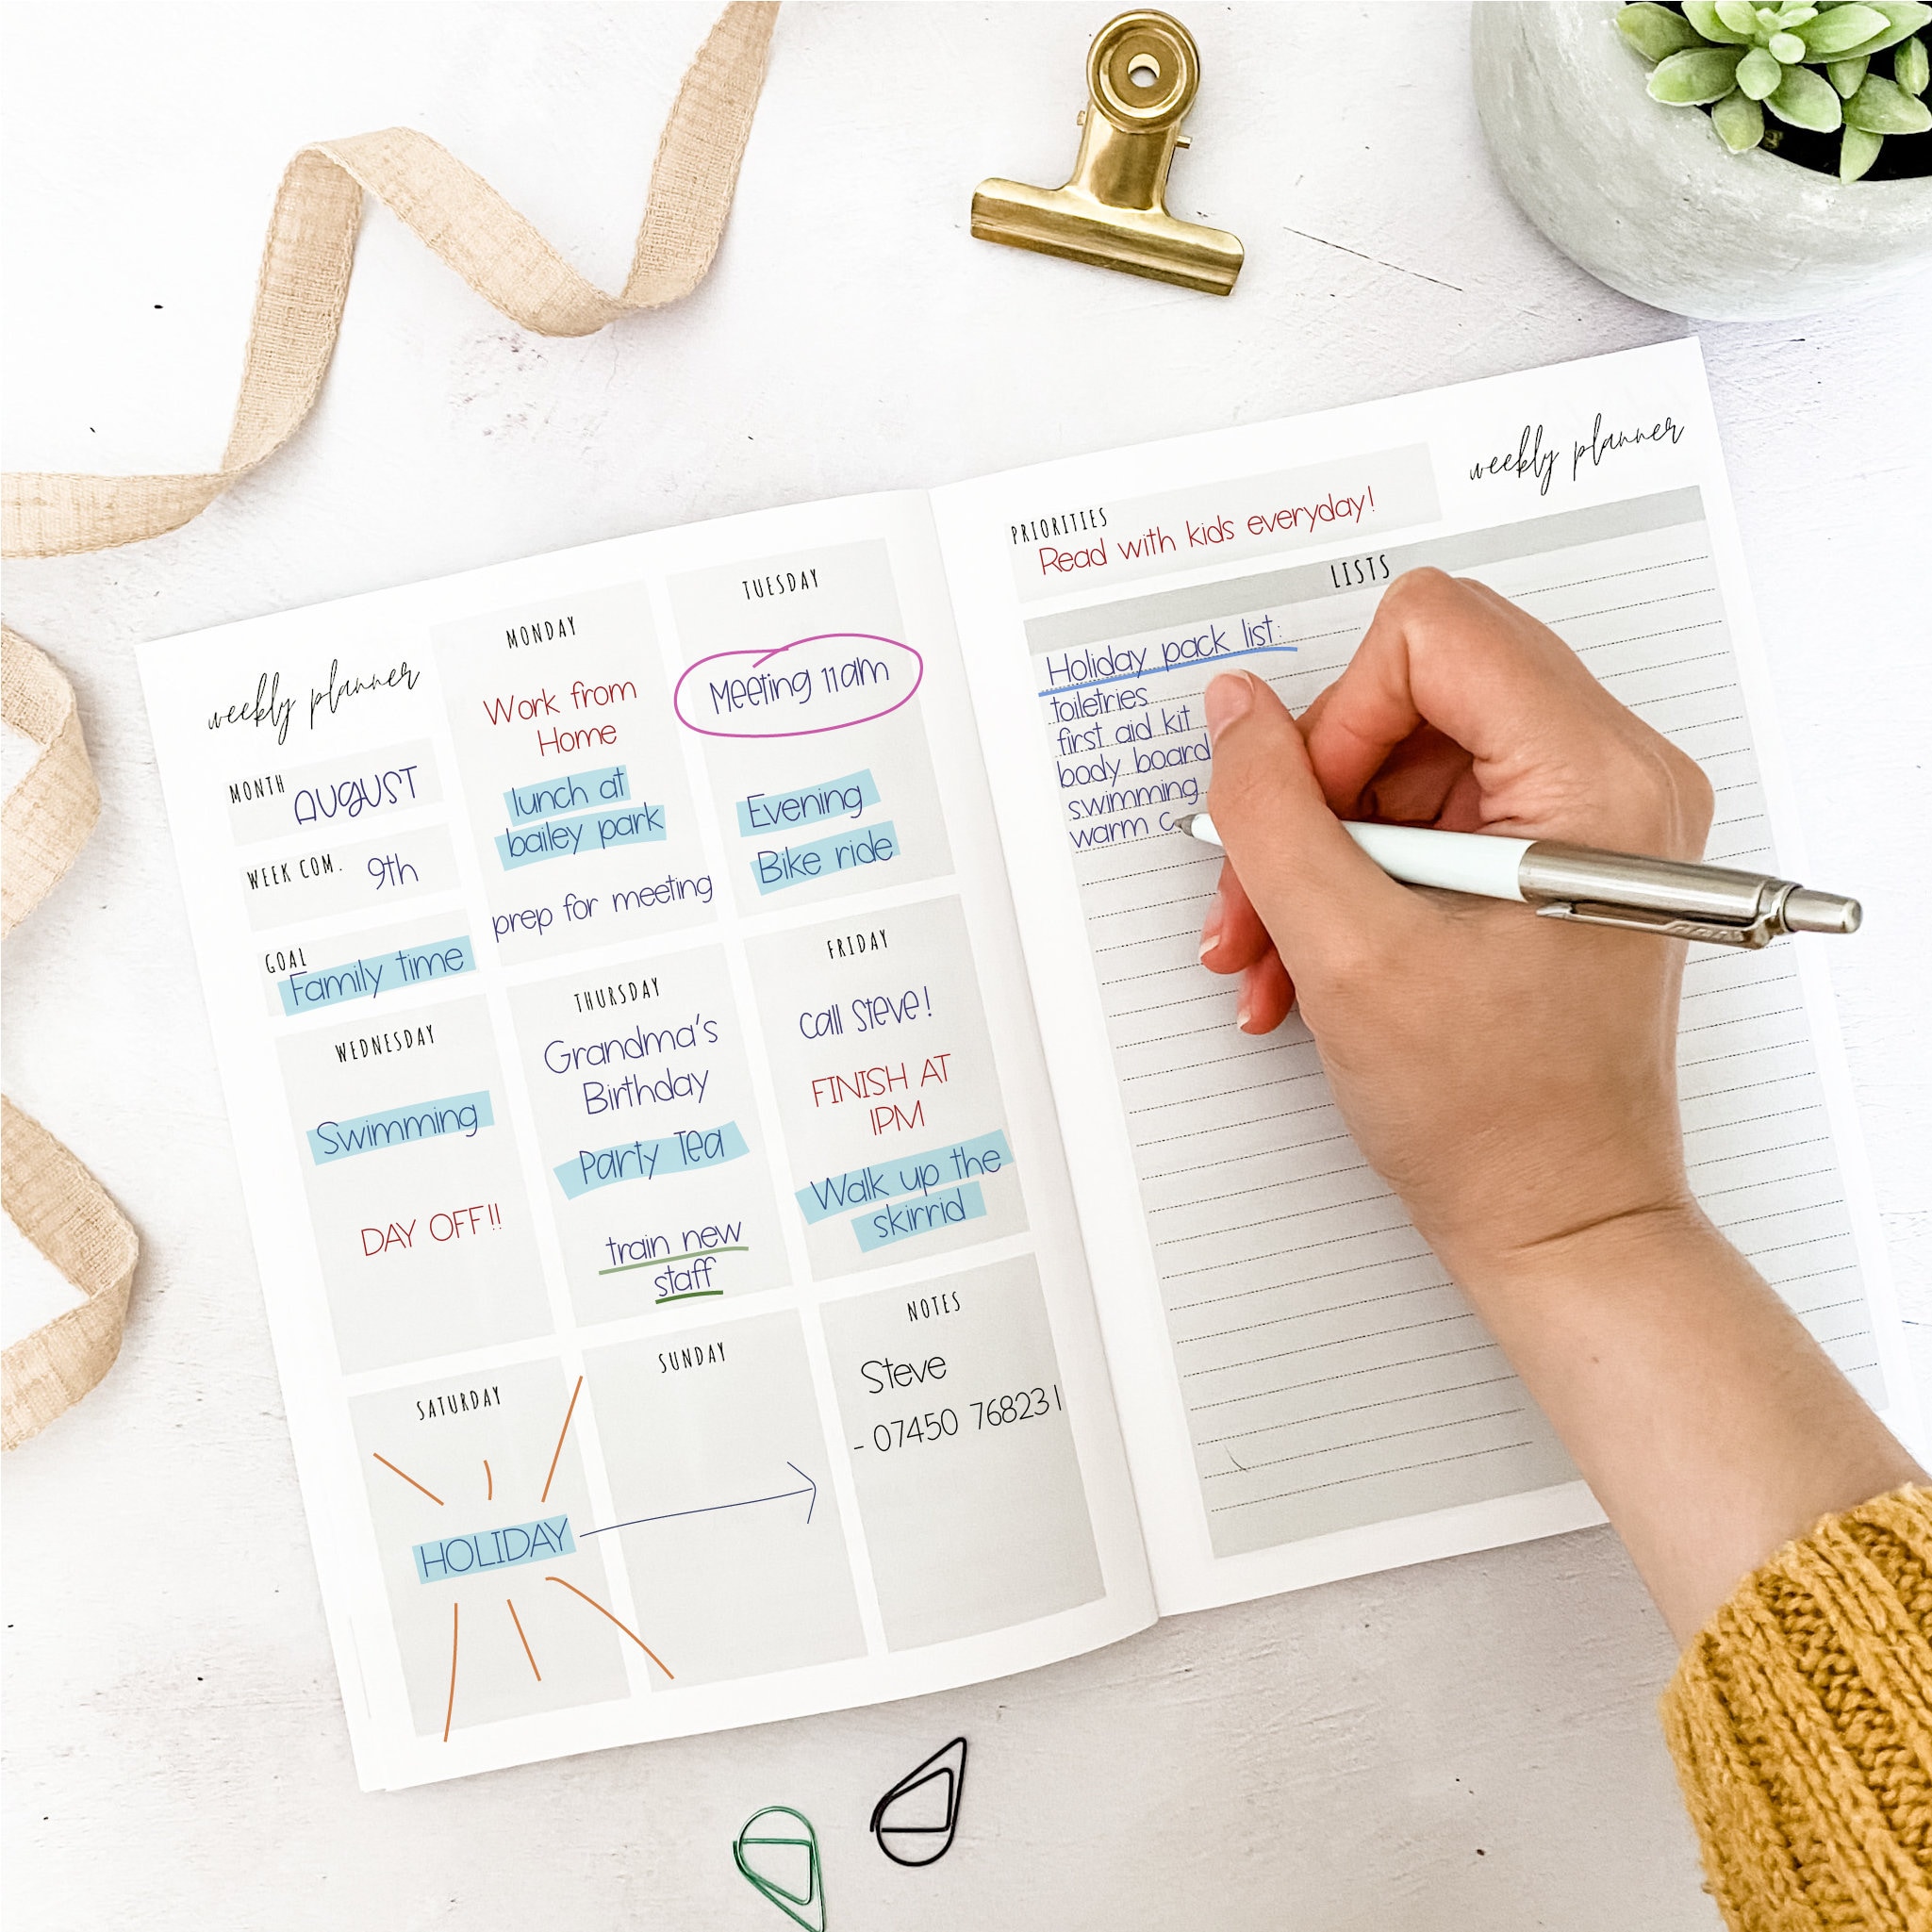 weekly planner
MONTH
AUGUST
WEEK COM.
9th
GOAL
Family time
MONDAY
Work from
Home
lunch at
bailey park
prep for meeting
TUESDAY
Meeting 11am
Evening
Bike ride
WEDNESDAY
Swimming
DAY OFF!!
THURSDAY
Grandma's
Birthday
Party Tea
train new
staff
FRIDAY
call Steve!
FINISH AT
1PM
Walk up the
skirrid
SATURDAY
HOLIDAY
SUNDAY
NOTES
Steve
- 07450 768231
weekly planner
PRIORITIES
Read with kids everyday!
LISTS
Holiday pack list:
toiletries
first aid kit
body board
swimming
warm c